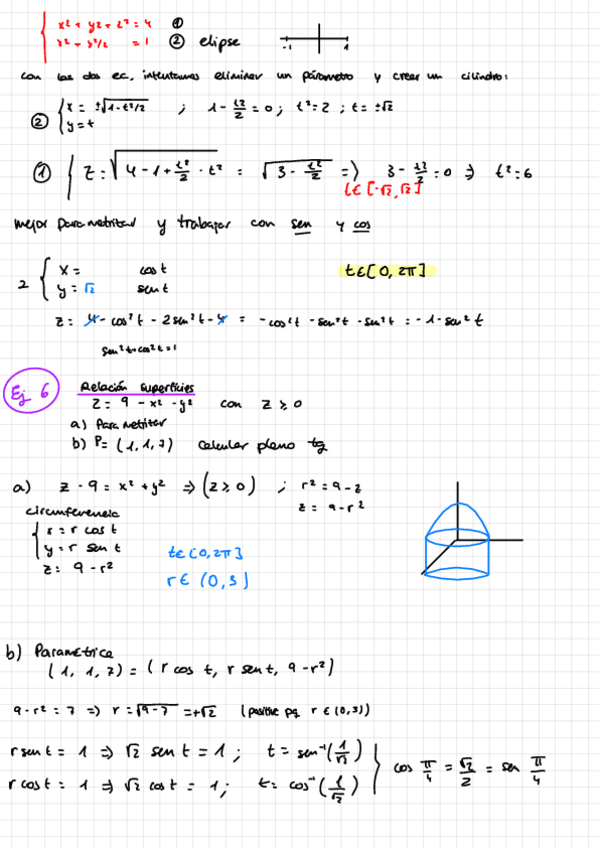 x² + y² + z² = 4 ①
x² + y²/2 = 1 ② elipse
-1 1
con las dos ec, intentamos eliminar un parámetro y crear un cilindro:
② { x = ±√1-t²/2 ; 1 - t²/2 = 0 ; t² = 2 ; t = ±√2
y = t
① { z = √4 - 1 + t²/2 - t² = √3 - t²/2 => 3 - t²/2 = 0 => t² = 6
t ∈ [-√2, √2]
mejor parametritar y trabajar con sen y cos
2 { x = cos t t ∈ [0, 2π]
y = √2 sen t
z: 4 - cos²t - 2 sen²t - 4 = -cos²t - sen²t - sen²t = -1 - sen²t
sen²t + cos²t = 1
Ej 6 Relación superficies
z = 9 - x² - y² con z ≥ 0
a) Parametritar
b) P = (1, 1, 7) calcular plano tg
a) z - 9 = x² + y² => (z ≥ 0) ; r² = 9 - z
z = 9 - r²
circunferencia
{ x = r cos t
y = r sen t t ∈ [0, 2π]
z = 9 - r² r ∈ (0, 3)
b) Paramétrica
(1, 1, 7) = (r cos t, r sen t, 9 - r²)
9 - r² = 7 => r = √9-7 = +√2 (positive pq r ∈ (0, 3))
r sen t = 1 => √2 sen t = 1 ; t = sen⁻¹(1/√2)
r cos t = 1 => √2 cos t = 1 ; t = cos⁻¹(1/√2) } cos π/4 = √2/2 = sen π/4